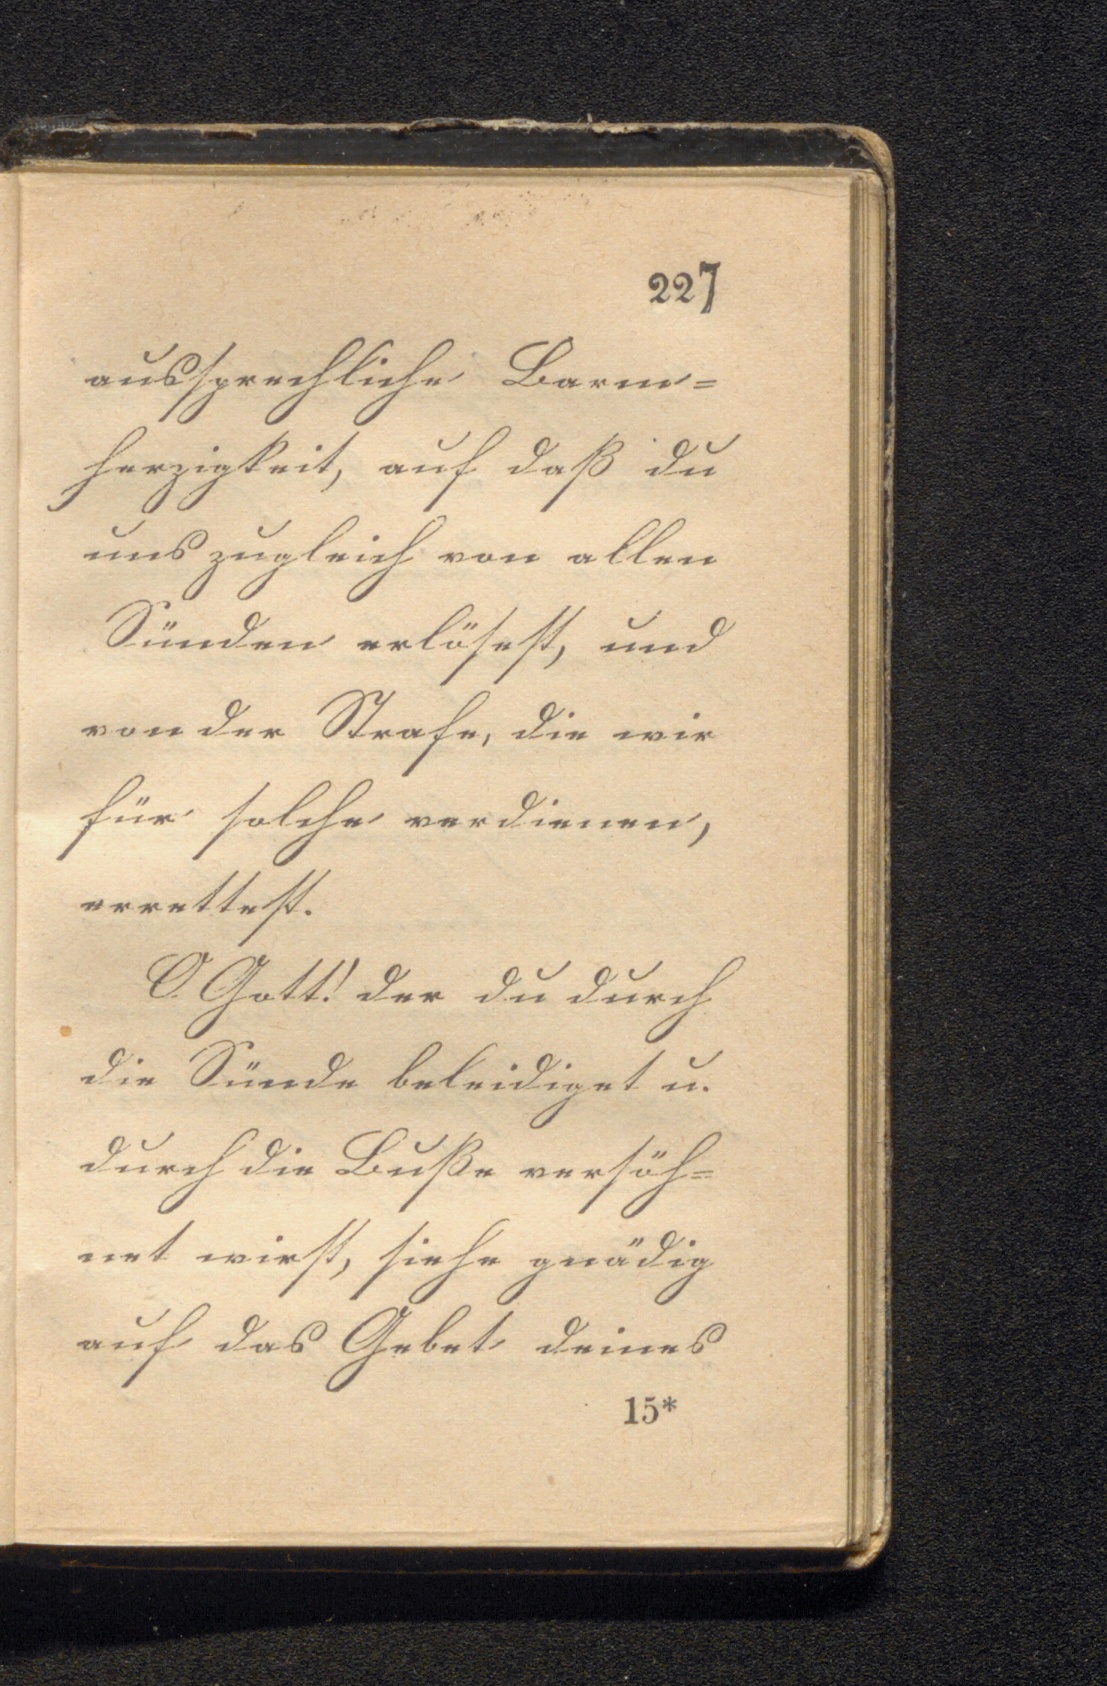 227
aussprechliche Barm=
herzigkeit, auf daß du
uns zugleich von allen
Sünden erlösest, und
von der Strafe, die wir
für solche verdienen,
errettest.
O Gott! der du durch
die Sünde beleidiget u.
durch die Buße versöh=
net wirst, siehe gnädig
auf das Gebet deines
15*